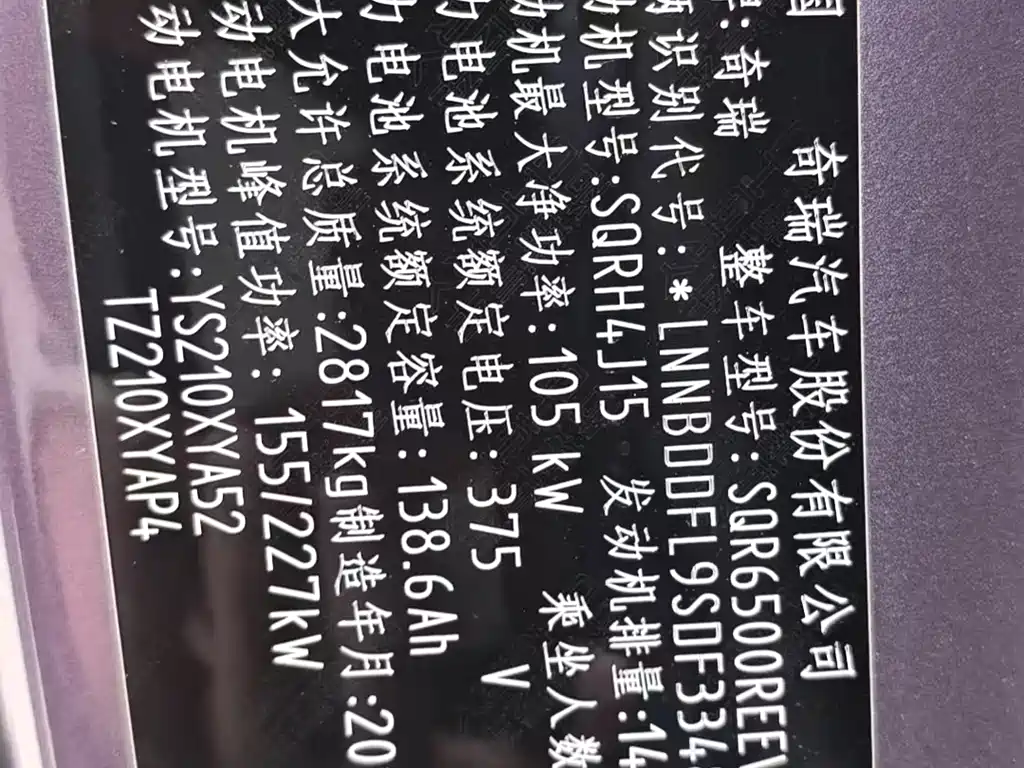 国 奇瑞汽车股份有限公司
牌:奇瑞 整车型号:SQR6500REEV
辆识别代号:*LNNBDDFL9SDF334
动机型号:SQRH4J15 发动机排量:14
动机最大净功率:105 kW 乘坐人数
力电池系统额定电压:375 V
力电池系统额定容量:138.6Ah
大允许总质量:2817kg制造年月:20
动电机峰值功率: 155/227kW
动电机型号:YS210XYA52
TZ210XYAP4